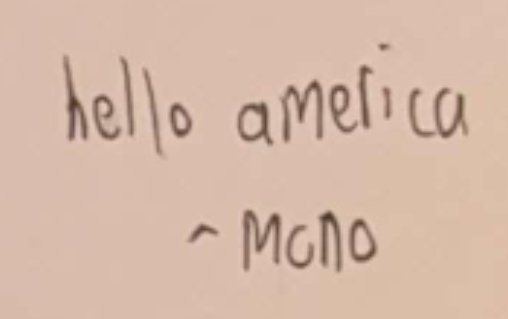 hello america
~ Mono